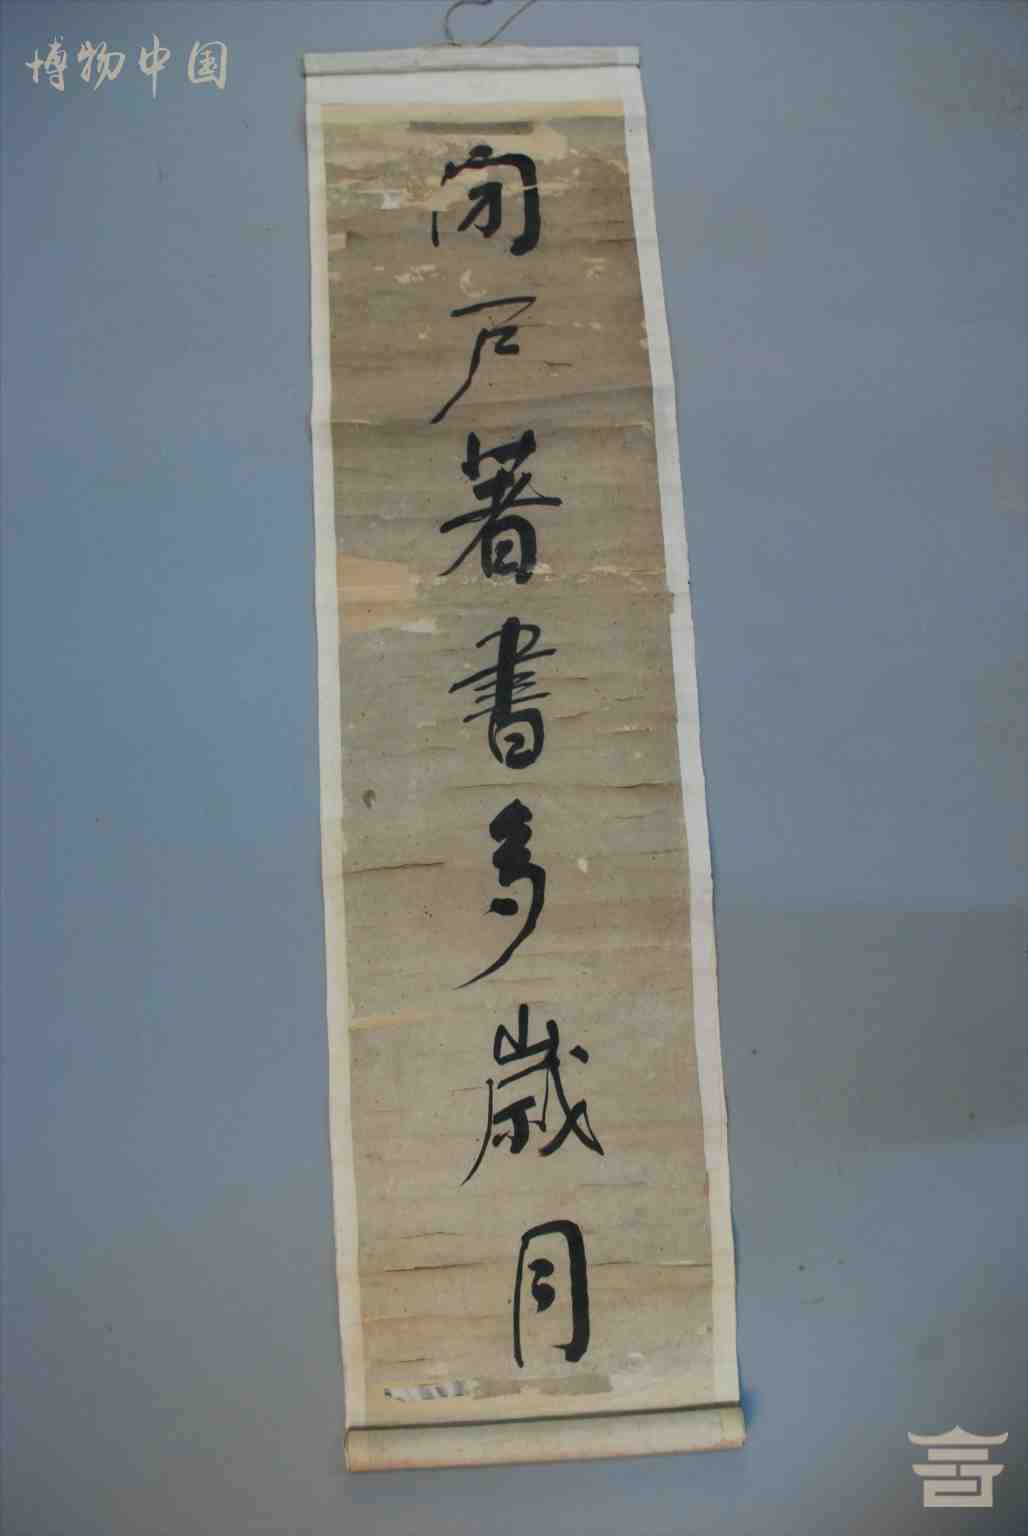 博物中国
閉戶著書多歲月